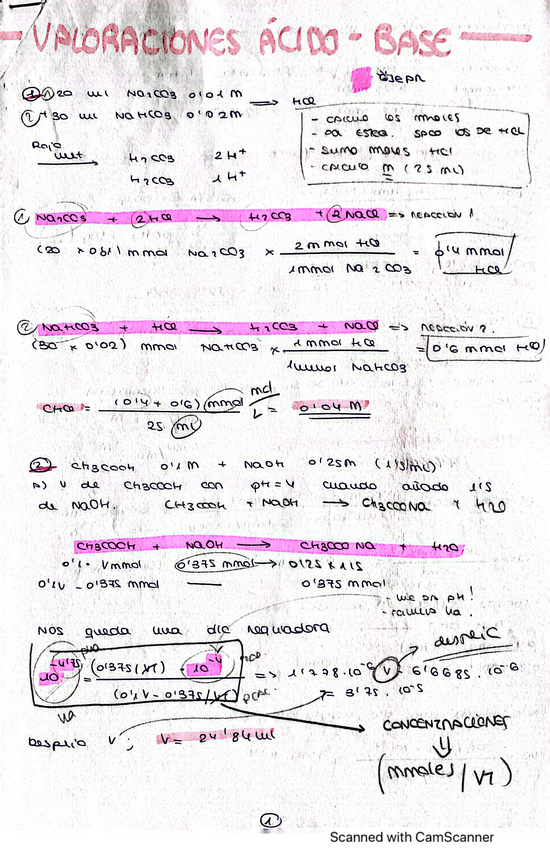 VALORACIONES ÁCIDO - BASE
① 20 ml Na2CO3 0'01 M
② +30 ml NaHCO3 0'02 M ⟹ HCl
- CALCULO LOS MMOLES
- POR ESTEQ. SACO LOS DE HCl
- SUMO MOLES HCl
- CALCULO M (25 ML)
Rojo → H2CO3 2H+
H2CO3 1H+
① Na2CO3 + 2HCl → H2CO3 + 2NaCl => REACCIÓN 1.
(20 × 0'01) mmol Na2CO3 × 2 mmol HCl / 1 mmol Na2CO3 = 0'4 mmol HCl
② NaHCO3 + HCl → H2CO3 + NaCl => REACCIÓN 2.
(30 × 0'02) mmol NaHCO3 × 1 mmol HCl / 1 mmol NaHCO3 = 0'6 mmol HCl
CHCl = (0'4 + 0'6) mmol / 25 ml mol/L = 0'04 M
② CH3COOH 0'1 M + NaOH 0'25M (1'5 ml)
A) V de CH3COOH con pH=4 cuando añado 1'5
de NaOH. CH3COOH + NaOH → CH3COONa + H2O
CH3COOH + NaOH → CH3COONa + H2O
0'1 · V mmol 0'375 mmol → 0'25 × 1'5
0'1V - 0'375 mmol — 0'375 mmol
- me da pH!
Nos queda una dic reguladora
10^-4'75 = (0'375/VT) · 10^-4 / (0'1V - 0'375/VT) => 1'778·10^-6 V - 6'6685·10^-6
= 3'75·10^-5
despejc
Despejo V; V = 24'84 ml
CONCENTRACIONES
(mmoles/VT)
1
Scanned with CamScanner